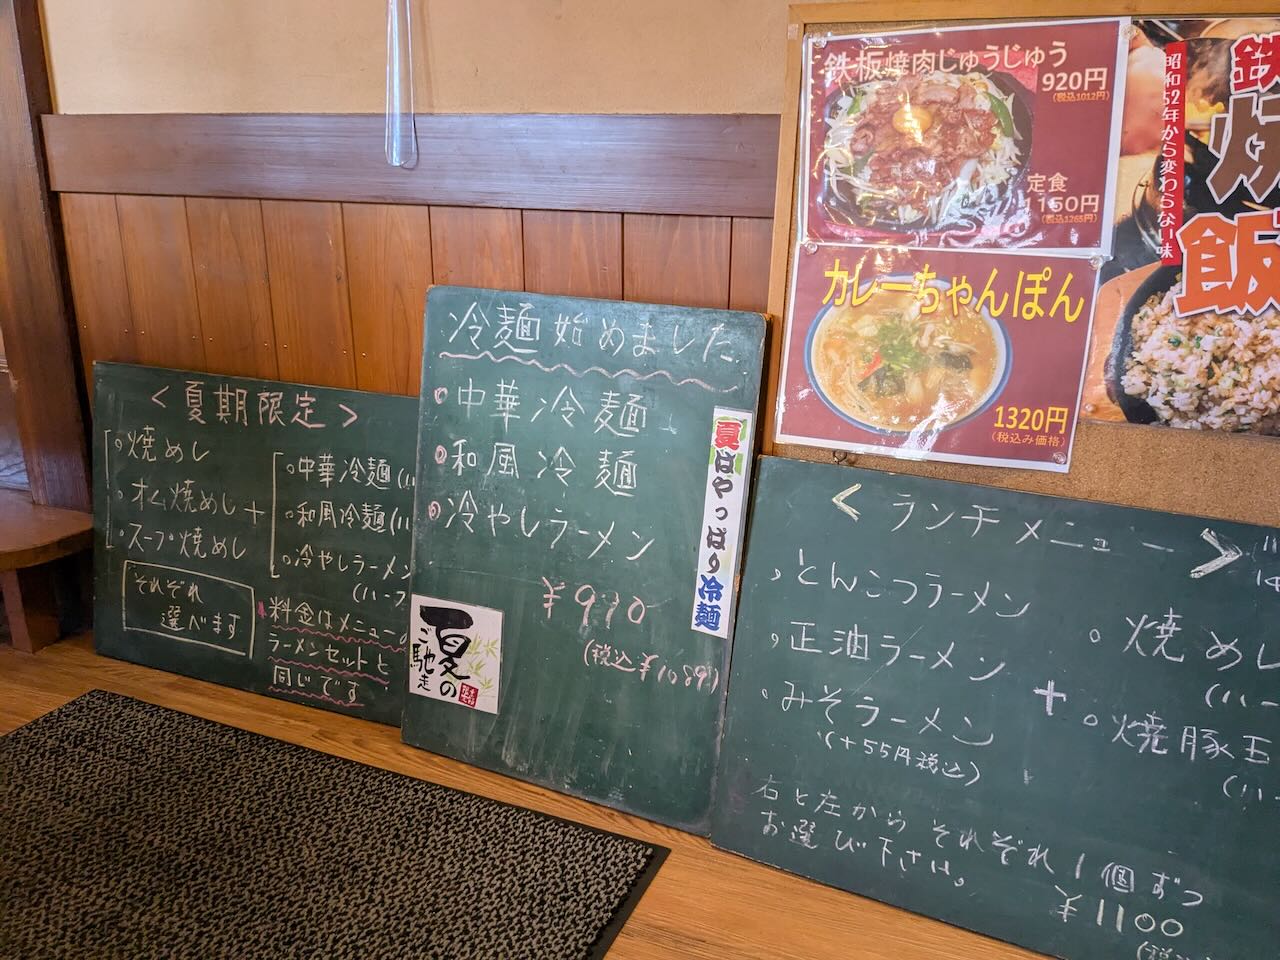 鉄板焼肉じゅうじゅう
920円
(税込1012円)
定食
1150円
(税込1265円)
カレーちゃんぽん
1320円
(税込み価格)
昭和52年から変わらない味
飯
<夏期限定>
○焼めし
○オム焼めし
○スープ焼めし
+
○中華冷麺(ハ
○和風冷麺(ハ
○冷やしラーメン
(ハーフ
それぞれ
選べます
料金はメニュー
ラーメンセットと
同じです
冷麺始めました
○中華冷麺
○和風冷麺
○冷やしラーメン
¥990
(税込¥1089)
夏はやっぱり冷麺
夏の
ご馳走
<ランチメニュー>
○とんこつラーメン
○正油ラーメン
○みそラーメン
(+55円税込)
+
○焼めし
(ハー
○焼豚玉
(ハー
右と左からそれぞれ1個ずつ
お選び下さい。
¥1100